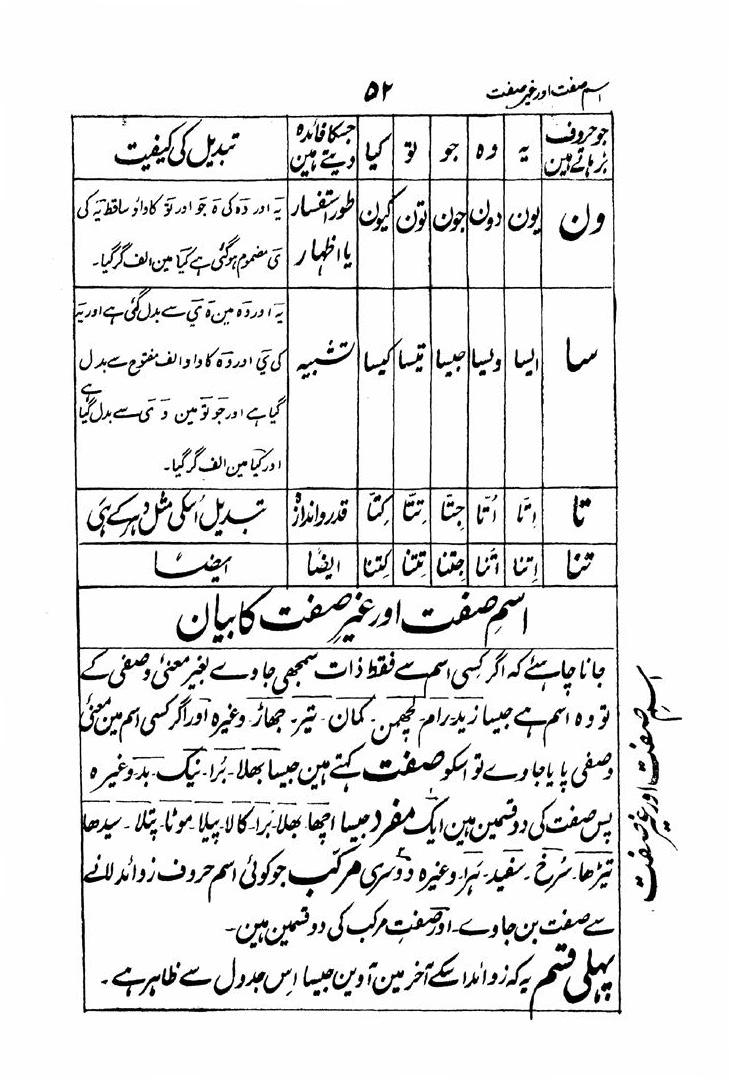 ۵۲ اسم صفت اور غیر صفت
جو حروف بڑہاتے ہین | یہ | وہ | جو | تو | کیا | جسکا فائدہ دیتے ہین | تبدیل کی کیفیت
ون | یون | وون | جون | تون | کیون | طور استفسار یا اظہار | یہ اور وہ کی ہ جو اور تو کا داو ساقط یہ کی
ی مضموم ہوگئی ہے کیا مین الف گرگیا۔
سا | ایسا | ویسا | جیسا | تیسا | کیسا | تشبیہ | یہ اور وہ مین ہ ی سے بدل گئی ہے اور یہ
کی ی اور وہ کا واو الف مفتوح سے بدل
گیا ہے اور جو تو مین و ی سے بدل گیا ہے
اور کیا مین الف گرگیا۔
تا | اِتّا | اُتّا | جِتّا | تِتّا | کِتّا | قدر و اندازہ | تبدیل اُسکی مثل دہر کے ہی
تنا | اِتنا | اُتنا | جِتنا | تِتنا | کِتنا | ایضًا | ایضًا
اسمِ صفت اور غیرِ صفت کا بیان
جانا چاہئے کہ اگر کسی اسم سے فقط ذات سمجھی جاوے بغیر معنیٔ وصفی کے
تو وہ اسم ہے جیسا زید۔ رام۔ لچھمن۔ کمان۔ تیر۔ جھاڑ۔ وغیرہ اور اگر کسی اسم مین معنیٔ
وصفی پایا جاوے تو اسکو صفت کہتے ہین جیسا بھلا۔ بُرا۔ نیک۔ بد۔ وغیرہ
پس صفت کی دو قسمین ہین ایک مفرد جیسا اچھا۔ بھلا۔ بُرا۔ کالا۔ پیلا۔ موٹا۔ پتلا۔ سیدھا
تیڑھا۔ سُرخ۔ سفید۔ ہرا۔ وغیرہ دوسری مرکب جو کوئی اسم حروف زوائد لانے
سے صفت بن جاوے۔ اور صفتِ مرکب کی دو قسمین ہین۔
پہلی قسم یہ کہ زوائد اسکے آخر مین آوین جیسا اِس جدول سے ظاہر ہے۔
اسمِ صفت اور غیر صفت